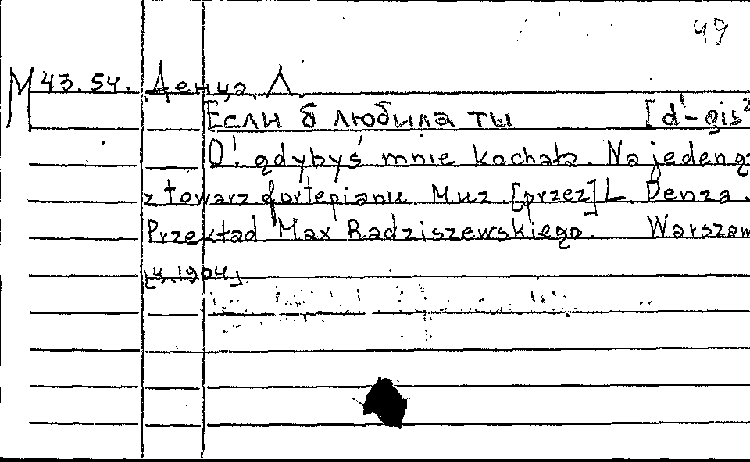 49
М 43.54. Денца, Л.
Если б любила ты [d¹-gis²
O! gdybyś mnie kochała. Na jeden gł
z towarz fortepianu. Muz. [przez] L. Denza.
Przekład Max Radziszewskiego. Warszaw
[4.1904]